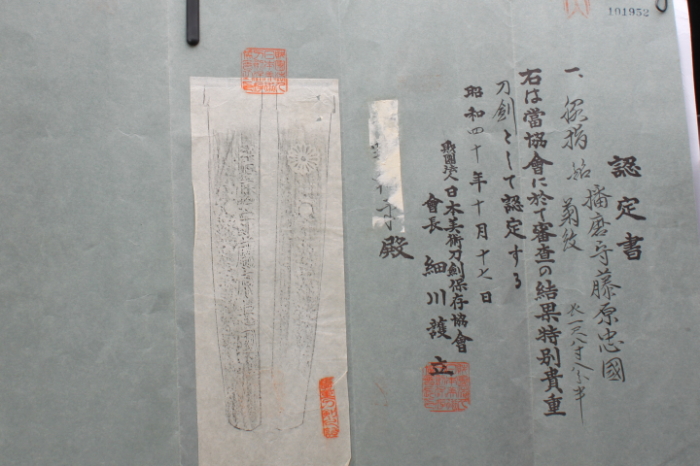 101952
認定書
一、脇指 銘 播磨守藤原忠國
菊紋 長一尺八寸八分半
右は當協會に於て審査の結果特別貴重
刀劍として認定する
昭和四十年十月十七日
財團法人日本美術刀劍保存協會
會長 細川護立
殿